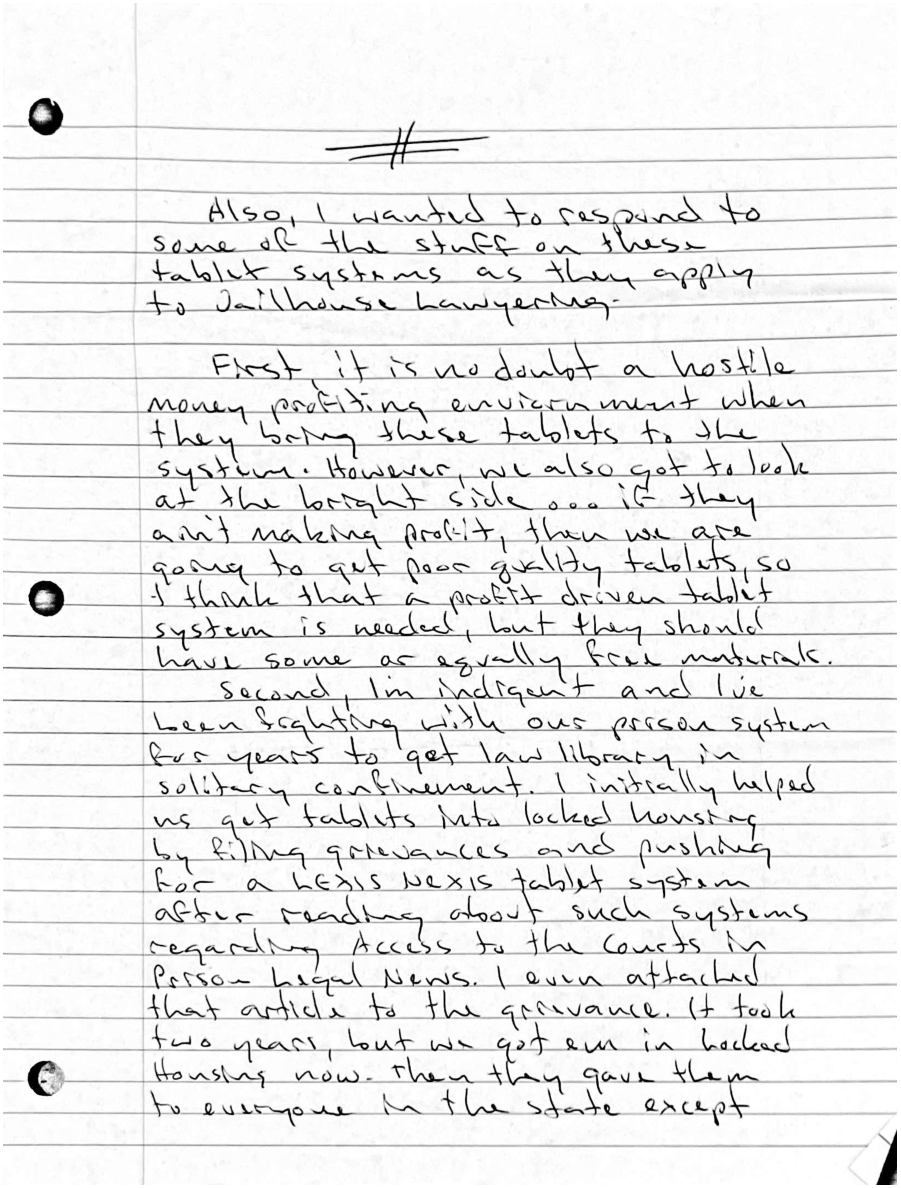 Also, I wanted to respond to
some of the stuff on these
tablet systems as they apply
to Jailhouse Lawyering.
First, it is no doubt a hostile
money profiting enviornment when
they bring these tablets to the
system. However, we also got to look
at the bright side ... if they
ain't making profit, then we are
going to get poor quality tablets, so
I think that a profit driven tablet
system is needed, but they should
have some or equally free materials.
Second, I'm indigent and I've
been fighting with our prison system
for years to get law library in
solitary confinement. I initially helped
us get tablets into locked housing
by filing grievances and pushing
for a LEXIS NEXIS tablet system
after reading about such systems
regarding Access to the Courts in
Prison Legal News. I even attached
that article to the grievance. It took
two years, but we got em in Locked
Housing now. Then they gave them
to everyone in the state except